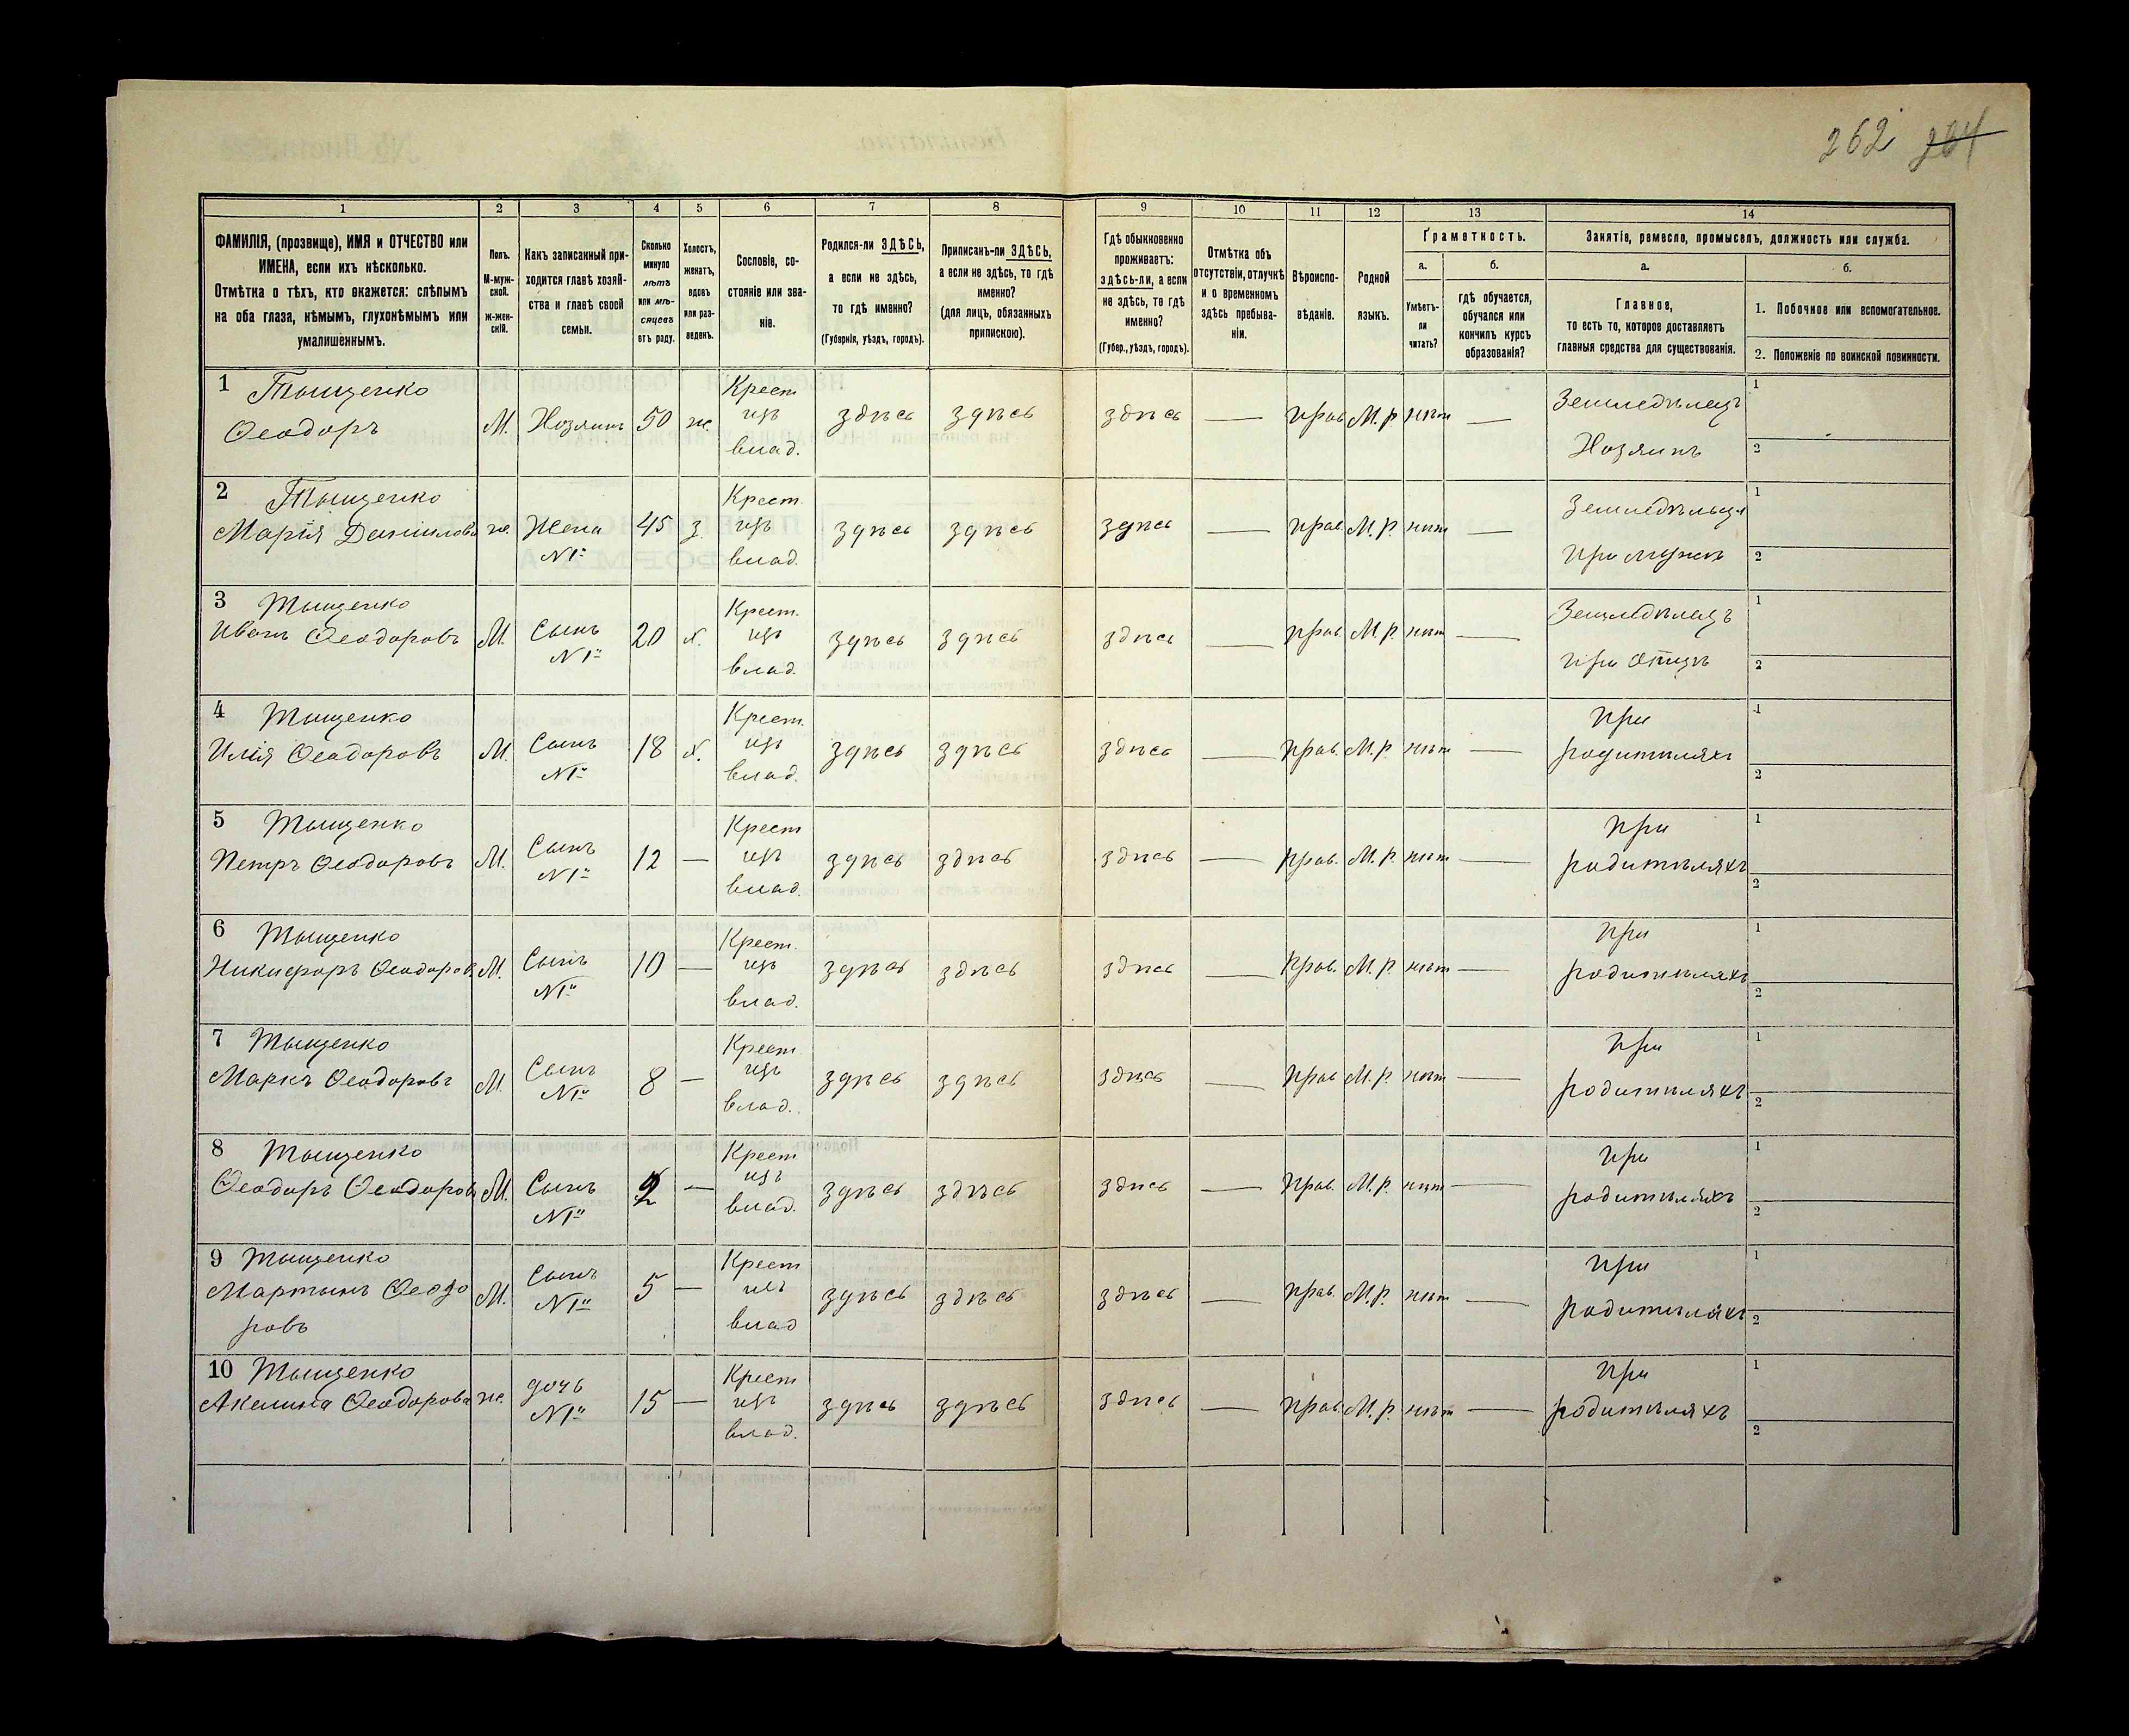 262 264
1 2 3 4 5 6 7 8 9 10 11 12 13 14
ФАМИЛІЯ, (прозвище), ИМЯ и ОТЧЕСТВО или
ИМЕНА, если ихъ нѣсколько.
Отмѣтка о тѣхъ, кто окажется: слѣпымъ
на оба глаза, нѣмымъ, глухонѣмымъ или
умалишеннымъ.
Полъ.
М-муж-
ской.
ж-жен-
скій.
Какъ записанный при-
ходится главѣ хозяй-
ства и главѣ своей
семьи.
Сколько
минуло
лѣтъ
или мѣ-
сяцевъ
отъ роду.
Холостъ,
женатъ,
вдовъ
или раз-
веденъ.
Сословіе, со-
стояніе или зва-
ніе.
Родился-ли ЗДѢСЬ,
а если не здѣсь,
то гдѣ именно?
(Губернія, уѣздъ, городъ).
Приписанъ-ли ЗДѢСЬ,
а если не здѣсь, то гдѣ
именно?
(для лицъ, обязанныхъ
припискою).
Гдѣ обыкновенно
проживаетъ:
здѣсь-ли, а если
не здѣсь, то гдѣ
именно?
(Губер., уѣздъ, городъ).
Отмѣтка объ
отсутствіи, отлучкѣ
и о временномъ
здѣсь пребыва-
ніи.
Вѣроиспо-
вѣданіе.
Родной
языкъ.
Грамотность.
а.
Умѣетъ-
ли
читать?
б.
гдѣ обучается,
обучался или
кончилъ курсъ
образованія?
Занятіе, ремесло, промыселъ, должность или служба.
а.
Главное,
то есть то, которое доставляетъ
главныя средства для существованія.
б.
1. Побочное или вспомогательное.
2. Положеніе по воинской повинности.
1 Тыщенко Крест 1
Ѳеодоръ М. Хозяинъ 50 ж. изъ здѣсь здѣсь здѣсь — прав М.р нѣт — Земледѣлецъ
влад. Хозяинъ 2
2 Тыщенко Крест. 1
Марія Данилова ж. Жена 45 з. изъ здѣсь здѣсь здѣсь — прав. М.р. нѣт — Земледѣльца
№1й влад. при мужѣ 2
3 Тыщенко Крест. 1
Иванъ Ѳеодоровъ М. Сынъ 20 х. изъ здѣсь здѣсь здѣсь — прав. М.р. нѣт — Земледѣлецъ
№1й влад. при отцѣ 2
4 Тыщенко Крест. при 1
Илія Ѳеодоровъ М. Сынъ 18 х. изъ здѣсь здѣсь здѣсь — прав. М.р. нѣт — родителяхъ
№1й влад. 2
5 Тыщенко Крест при 1
Петръ Ѳеодоровъ М. Сынъ 12 — изъ здѣсь здѣсь здѣсь — прав. М.р. нѣт — родителяхъ
№1й влад. 2
6 Тыщенко Крест. при 1
Никифоръ Ѳеодоров. М. Сынъ 10 — изъ здѣсь здѣсь здѣсь — прав. М.р. нѣт — родителяхъ
№1й влад. 2
7 Тыщенко Крест при 1
Маркъ Ѳеодоровъ М. Сынъ 8 — изъ здѣсь здѣсь здѣсь — прав М.р. нѣт — родителяхъ
№1й влад. 2
8 Тыщенко Крест при 1
Ѳеодоръ Ѳеодоровъ М. Сынъ 2 — изъ здѣсь здѣсь здѣсь — прав. М.р. нѣт — родителяхъ
№1й влад. 2
9 Тыщенко Крест при 1
Мартынъ Ѳеодо М. Сынъ 5 — изъ здѣсь здѣсь здѣсь — прав. М.р. нѣт — родителяхъ
ровъ №1й влад 2
10 Тыщенко Крест при 1
Акелина Ѳеодорова ж. дочь 15 — изъ здѣсь здѣсь здѣсь — прав. М.р. нѣт — родителяхъ
№1й влад. 2